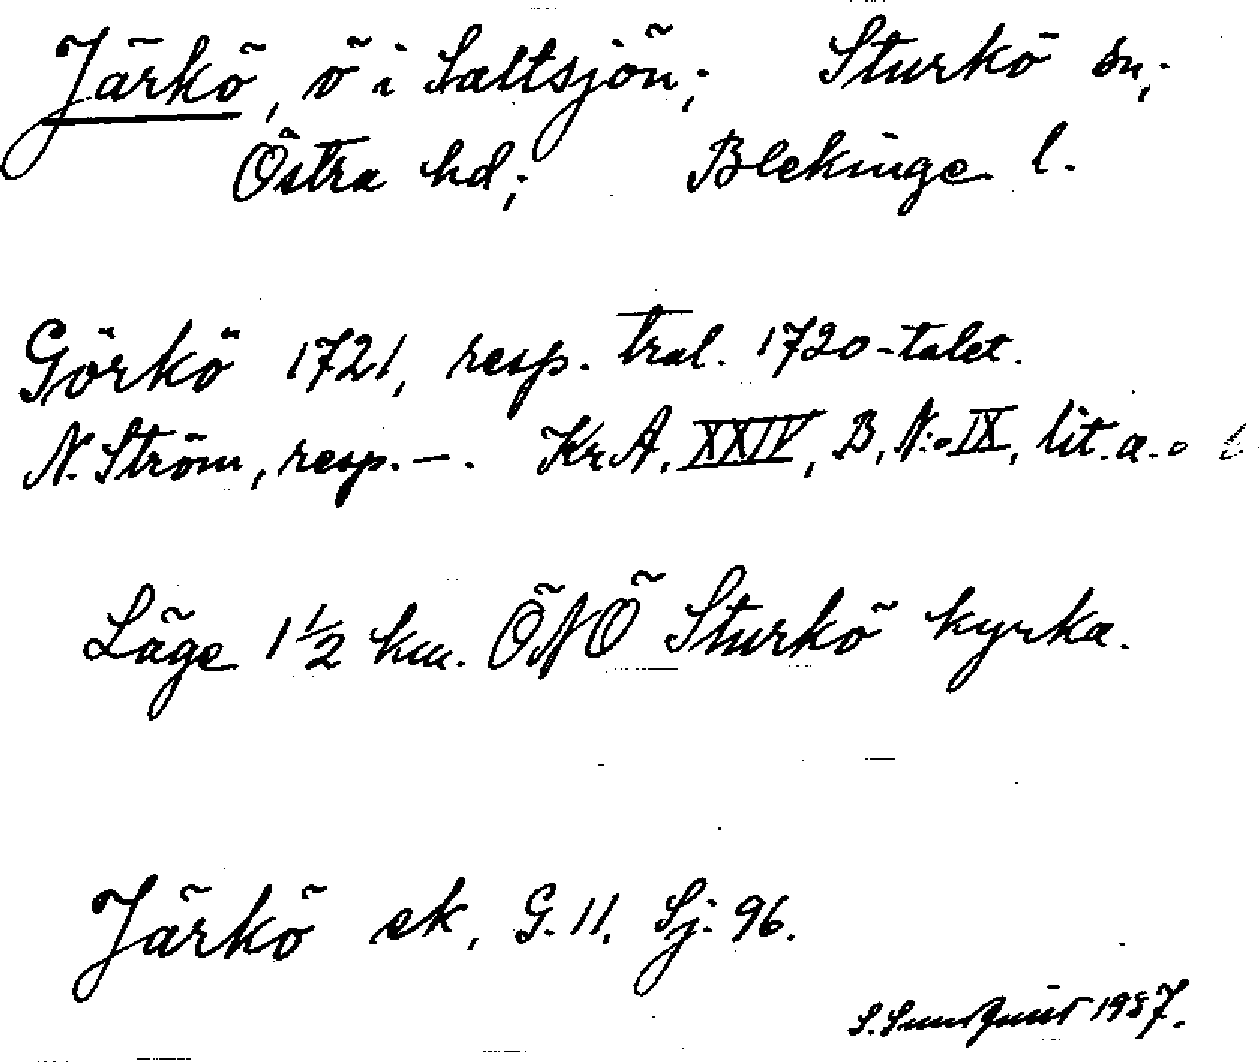 Järkö, ö i Saltsjön; Sturkö sn;
Östra hd; Blekinge l.
Görkö 1721, resp. tral. 1720-talet.
N. Ström, resp. —. KrA, XXIV, B, N:o IX, lit. a. o
Läge 1 1/2 km. ÖNÖ Sturkö kyrka.
Järkö ek, G. 11, Sj. 96.